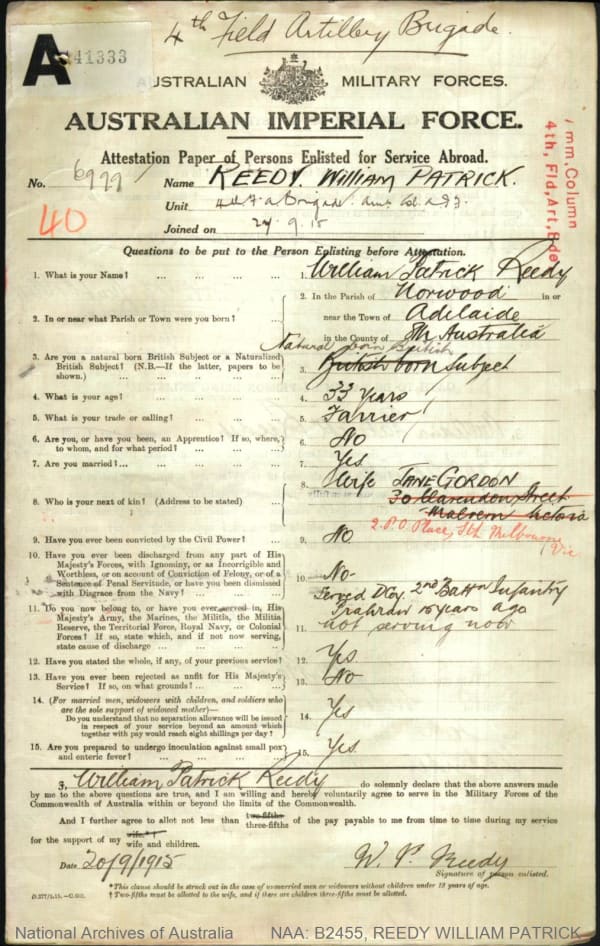 4th Field Artillery Brigade.
A 41333
AUSTRALIAN MILITARY FORCES.
AUSTRALIAN IMPERIAL FORCE.
Attestation Paper of Persons Enlisted for Service Abroad.
No. 6999 Name REEDY. William PATRICK.
Unit 4th F.A Brigade Am. Col. A.I.F.
40
Joined on 27.9.15
mm, Column
4th, Fld, Art, Bde
Questions to be put to the Person Enlisting before Attestation.
1. What is your Name? ... 1. William Patrick Reedy
2. In or near what Parish or Town were you born? ... 2. In the Parish of Norwood in or
near the Town of Adelaide
in the County of Sth Australia
3. Are you a natural born British Subject or a Naturalized British Subject? (N.B.—If the latter, papers to be shown.) ... 3. Natural born British British born Subject
4. What is your age? ... 4. 33 Years
5. What is your trade or calling? ... 5. Farrier
6. Are you, or have you been, an Apprentice? If so, where, to whom, and for what period? ... 6. No
7. Are you married? ... 7. Yes
8. Who is your next of kin? (Address to be stated) ... 8. Wife JANE GORDON
30 Clarendon Street
Malvern Victoria
2. P.O. Place, Sth Melbourne Vic
9. Have you ever been convicted by the Civil Power? ... 9. No
10. Have you ever been discharged from any part of His Majesty's Forces, with Ignominy, or as Incorrigible and Worthless, or on account of Conviction of Felony, or of a Sentence of Penal Servitude, or have you been dismissed with Disgrace from the Navy? ... 10. No
11. Do you now belong to, or have you ever served in, His Majesty's Army, the Marines, the Militia, the Militia Reserve, the Territorial Force, Royal Navy, or Colonial Forces? If so, state which, and if not now serving, state cause of discharge ... 11. Served D Coy. 2nd Battn Infantry
15 years ago
not serving now
12. Have you stated the whole, if any, of your previous service? 12. Yes
13. Have you ever been rejected as unfit for His Majesty's Service? If so, on what grounds? ... 13. No
14. (For married men, widowers with children, and soldiers who are the sole support of widowed mother)—
Do you understand that no separation allowance will be issued in respect of your service beyond an amount which together with pay would reach eight shillings per day? 14. Yes
15. Are you prepared to undergo inoculation against small pox and enteric fever? ... 15. Yes
I, William Patrick Reedy do solemnly declare that the above answers made
by me to the above questions are true, and I am willing and hereby voluntarily agree to serve in the Military Forces of the
Commonwealth of Australia within or beyond the limits of the Commonwealth.
And I further agree to allot not less than two-fifths three-fifths of the pay payable to me from time to time during my service
for the support of my wife*† wife and children.
Date 20/9/1915 W. P. Reedy
Signature of person enlisted.
*This clause should be struck out in the case of unmarried men or widowers without children under 18 years of age.
† Two-fifths must be allotted to the wife, and if there are children three-fifths must be allotted.
National Archives of Australia NAA: B2455, REEDY WILLIAM PATRICK